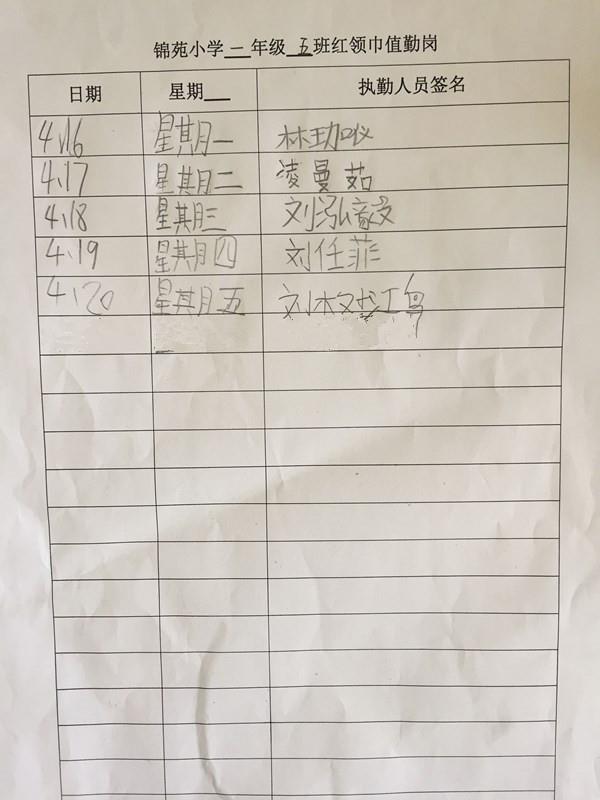 锦苑小学一年级 五班红领巾值勤岗
日期 星期 执勤人员签名
4.16 星期一 林
4.17 星期二 凌曼茹
4.18 星期三 刘泓毅
4.19 星期四 刘任菲
4.20 星期五 刘